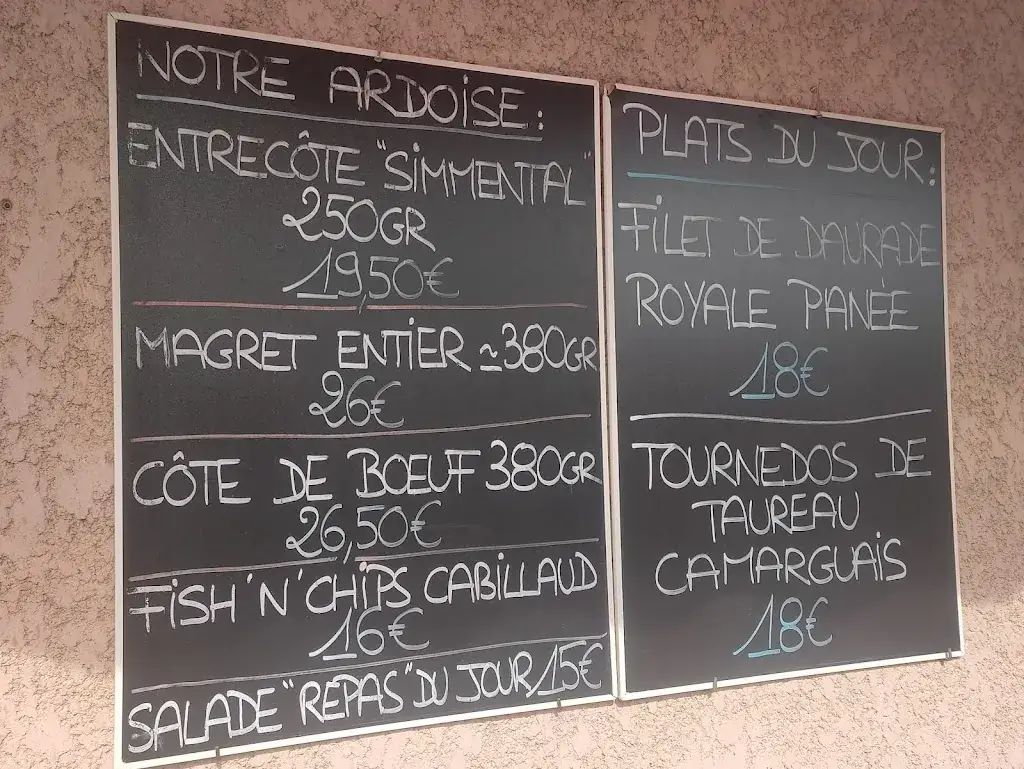 NOTRE ARDOISE :
ENTRECÔTE "SIMMENTAL"
250GR
19,50€
MAGRET ENTIER ≃380GR
26€
CÔTE DE BŒUF 380GR
26,50€
FISH 'N' CHIPS CABILLAUD
16€
SALADE "REPAS" DU JOUR 15€
PLATS DU JOUR :
FILET DE DAURADE
ROYALE PANÉE
18€
TOURNEDOS DE
TAUREAU
CAMARGUAIS
18€